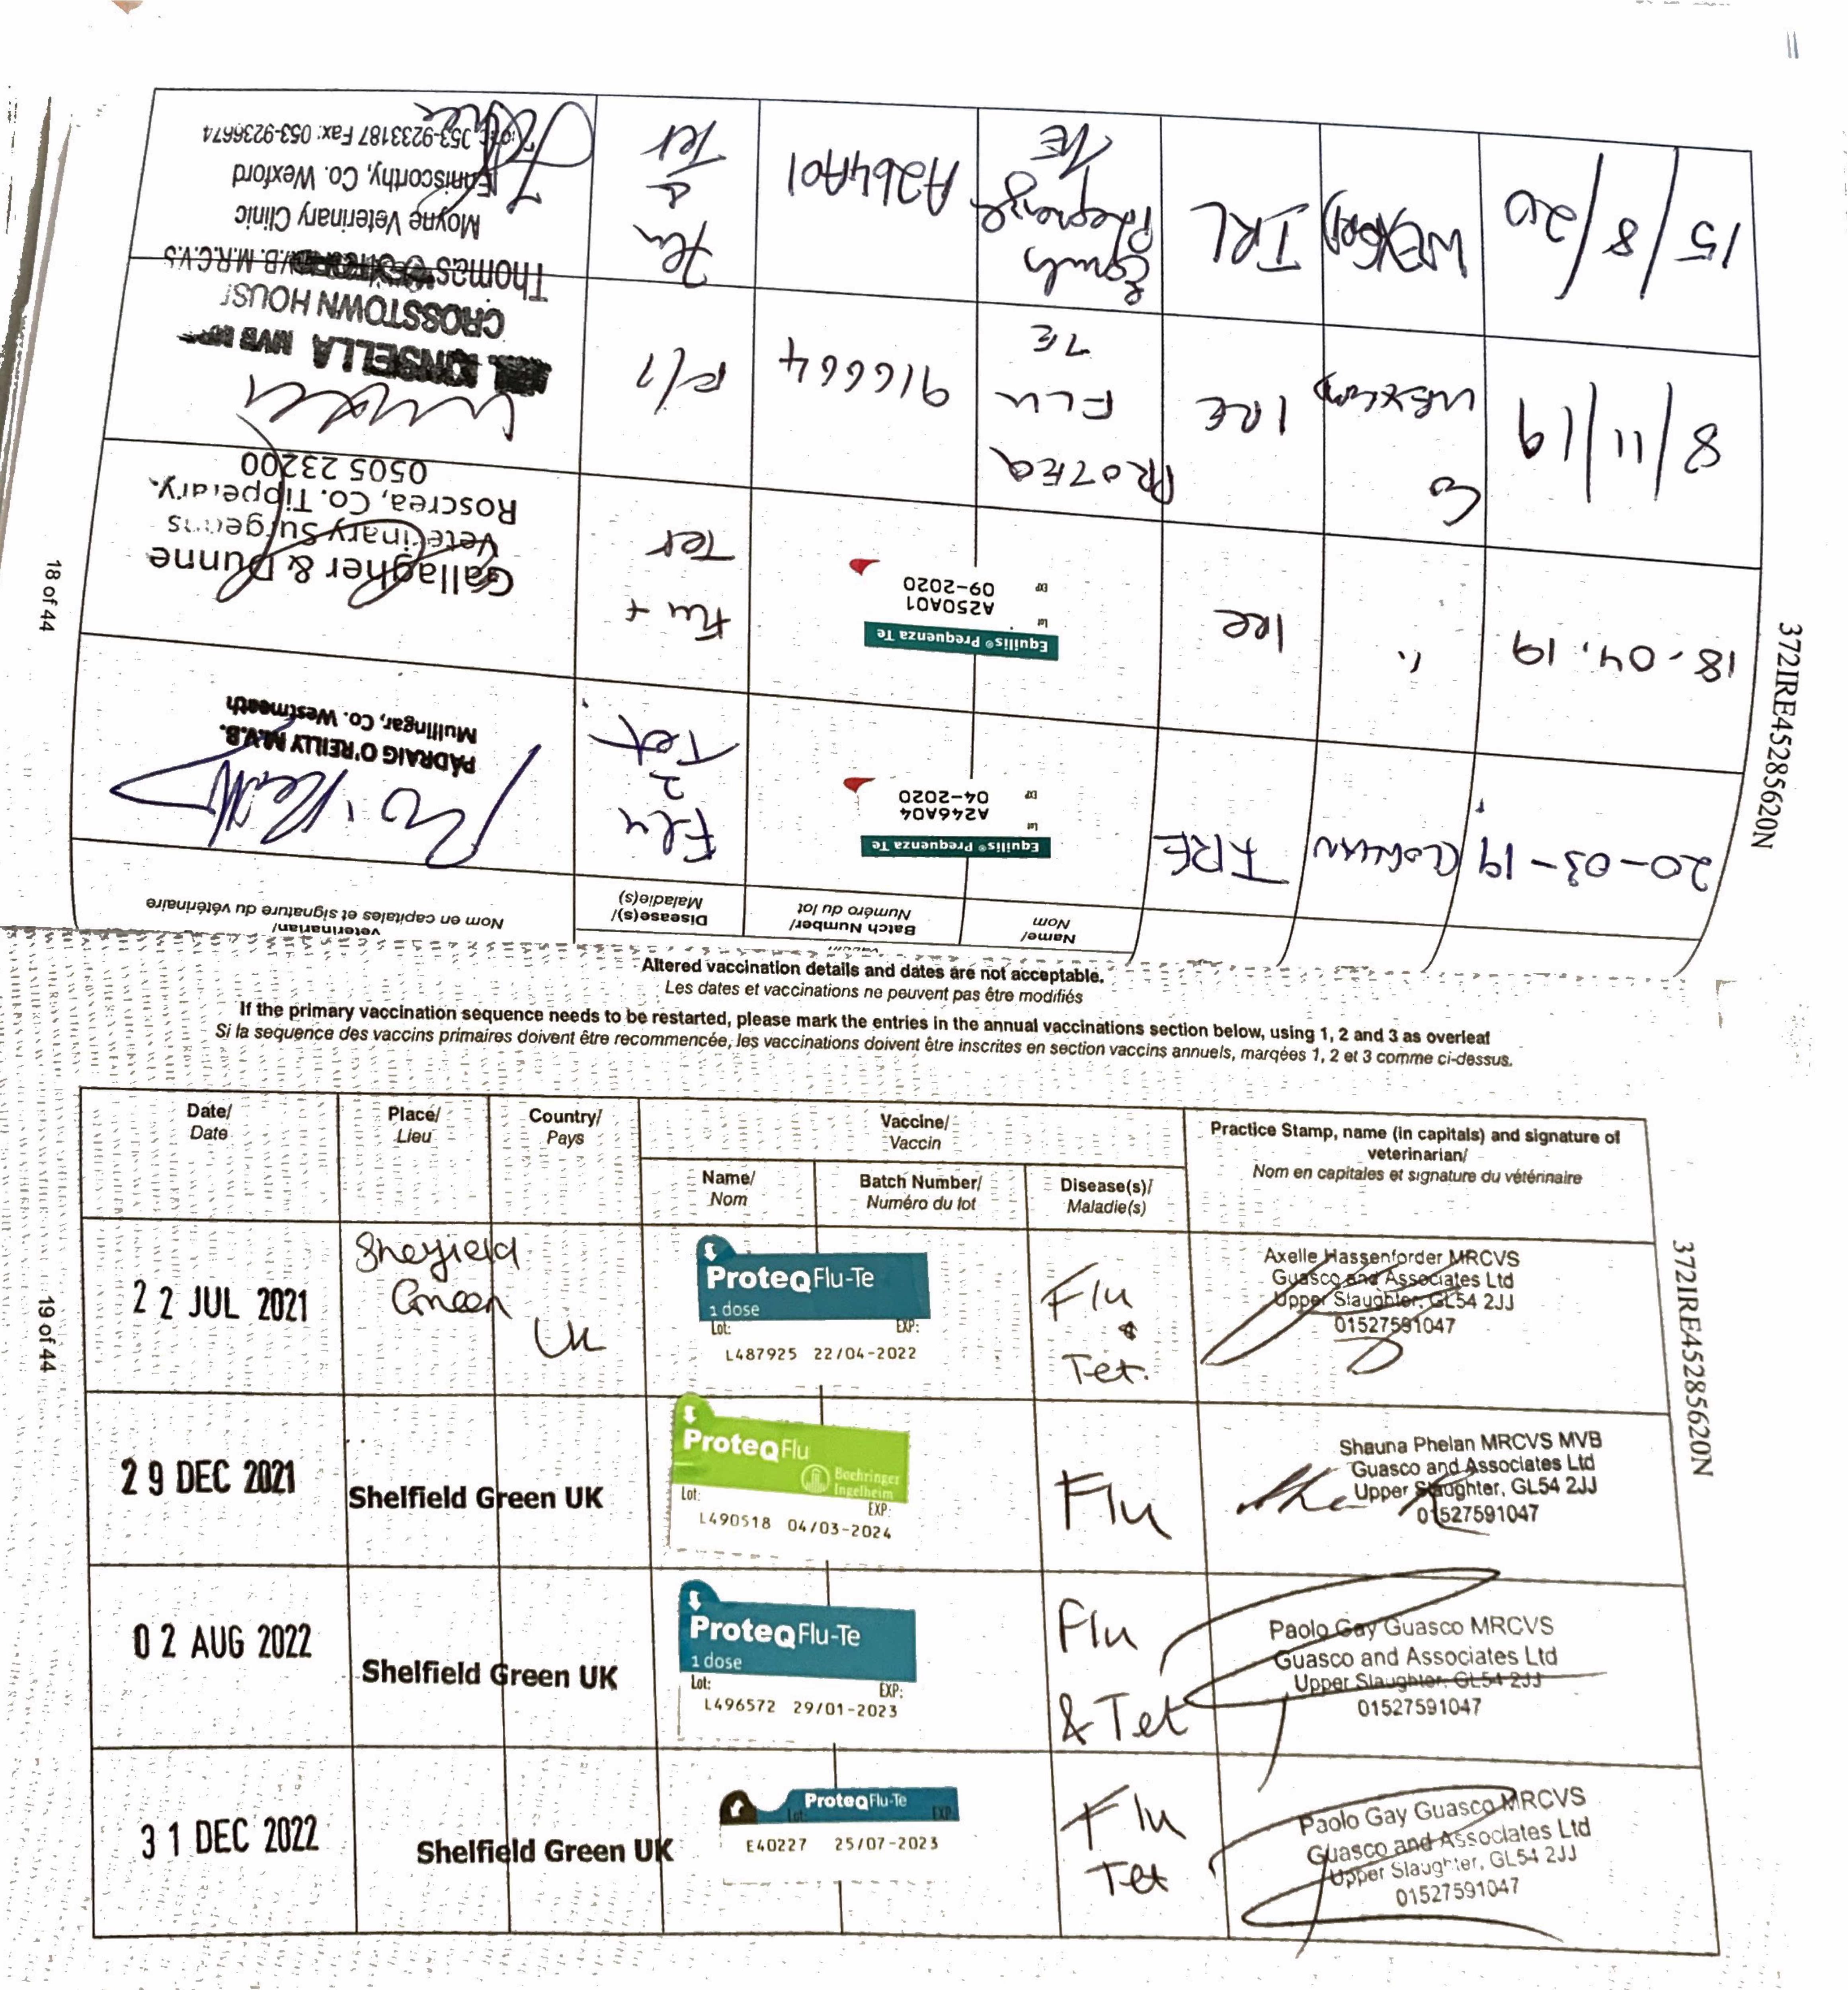 Nom en capitales et signature du vétérinaire
veterinarian/
Disease(s)/
Maladie(s)
Batch Number/
Numéro du lot
Name/
Nom
20-03-19
IRE
Equilis® Prequenza Te
Lot
A246A04
EXP
04-2020
Flu
2
Tet
PÁDRAIG O'REILLY M.V.B.
Mullingar, Co. Westmeath
18.04.19
"
Ire
Equilis® Prequenza Te
Lot
A250A01
EXP
09-2020
Flu +
Tet
Gallagher & Dunne
Veterinary Surgeons
Roscrea, Co. Tipperary.
0505 23200
8/11/19
Co
Wexford
IRE
PROTEQ
FLU
TE
916664
F/T
KINSELLA MVB
CROSSTOWN HOUSE
15/8/20
WEXFORD
IRL
Equilis
Prequenza
TE
A264A01
Flu
&
Tet
Thomas M.R.C.V.S
Moyne Veterinary Clinic
Enniscorthy, Co. Wexford
053-9233187 Fax: 053-9236674
18 of 44
372IRE45285620N
Altered vaccination details and dates are not acceptable.
Les dates et vaccinations ne peuvent pas être modifiés
If the primary vaccination sequence needs to be restarted, please mark the entries in the annual vaccinations section below, using 1, 2 and 3 as overleaf
Si la sequence des vaccins primaires doivent être recommencée, les vaccinations doivent être inscrites en section vaccins annuels, marqées 1, 2 et 3 comme ci-dessus.
Date/
Date
Place/
Lieu
Country/
Pays
Vaccine/
Vaccin
Name/
Nom
Batch Number/
Numéro du lot
Disease(s)/
Maladie(s)
Practice Stamp, name (in capitals) and signature of
veterinarian/
Nom en capitales et signature du vétérinaire
22 JUL 2021
Shelfield
Green
UK
ProteqFlu-Te
1 dose
Lot: EXP:
L487925 22/04-2022
Flu
&
Tet.
Axelle Hassenforder MRCVS
Guasco and Associates Ltd
Upper Slaughter, GL54 2JJ
01527591047
29 DEC 2021
Shelfield Green UK
ProteqFlu
Boehringer
Ingelheim
Lot: EXP:
L490518 04/03-2024
Flu
Shauna Phelan MRCVS MVB
Guasco and Associates Ltd
Upper Slaughter, GL54 2JJ
01527591047
02 AUG 2022
Shelfield Green UK
ProteqFlu-Te
1 dose
Lot: EXP:
L496572 29/01-2023
Flu
& Tet
Paolo Gay Guasco MRCVS
Guasco and Associates Ltd
Upper Slaughter, GL54 2JJ
01527591047
31 DEC 2022
Shelfield Green UK
ProteqFlu-Te
Lot: EXP:
E40227 25/07-2023
Flu
Tet
Paolo Gay Guasco MRCVS
Guasco and Associates Ltd
Upper Slaughter, GL54 2JJ
01527591047
19 of 44
372IRE45285620N